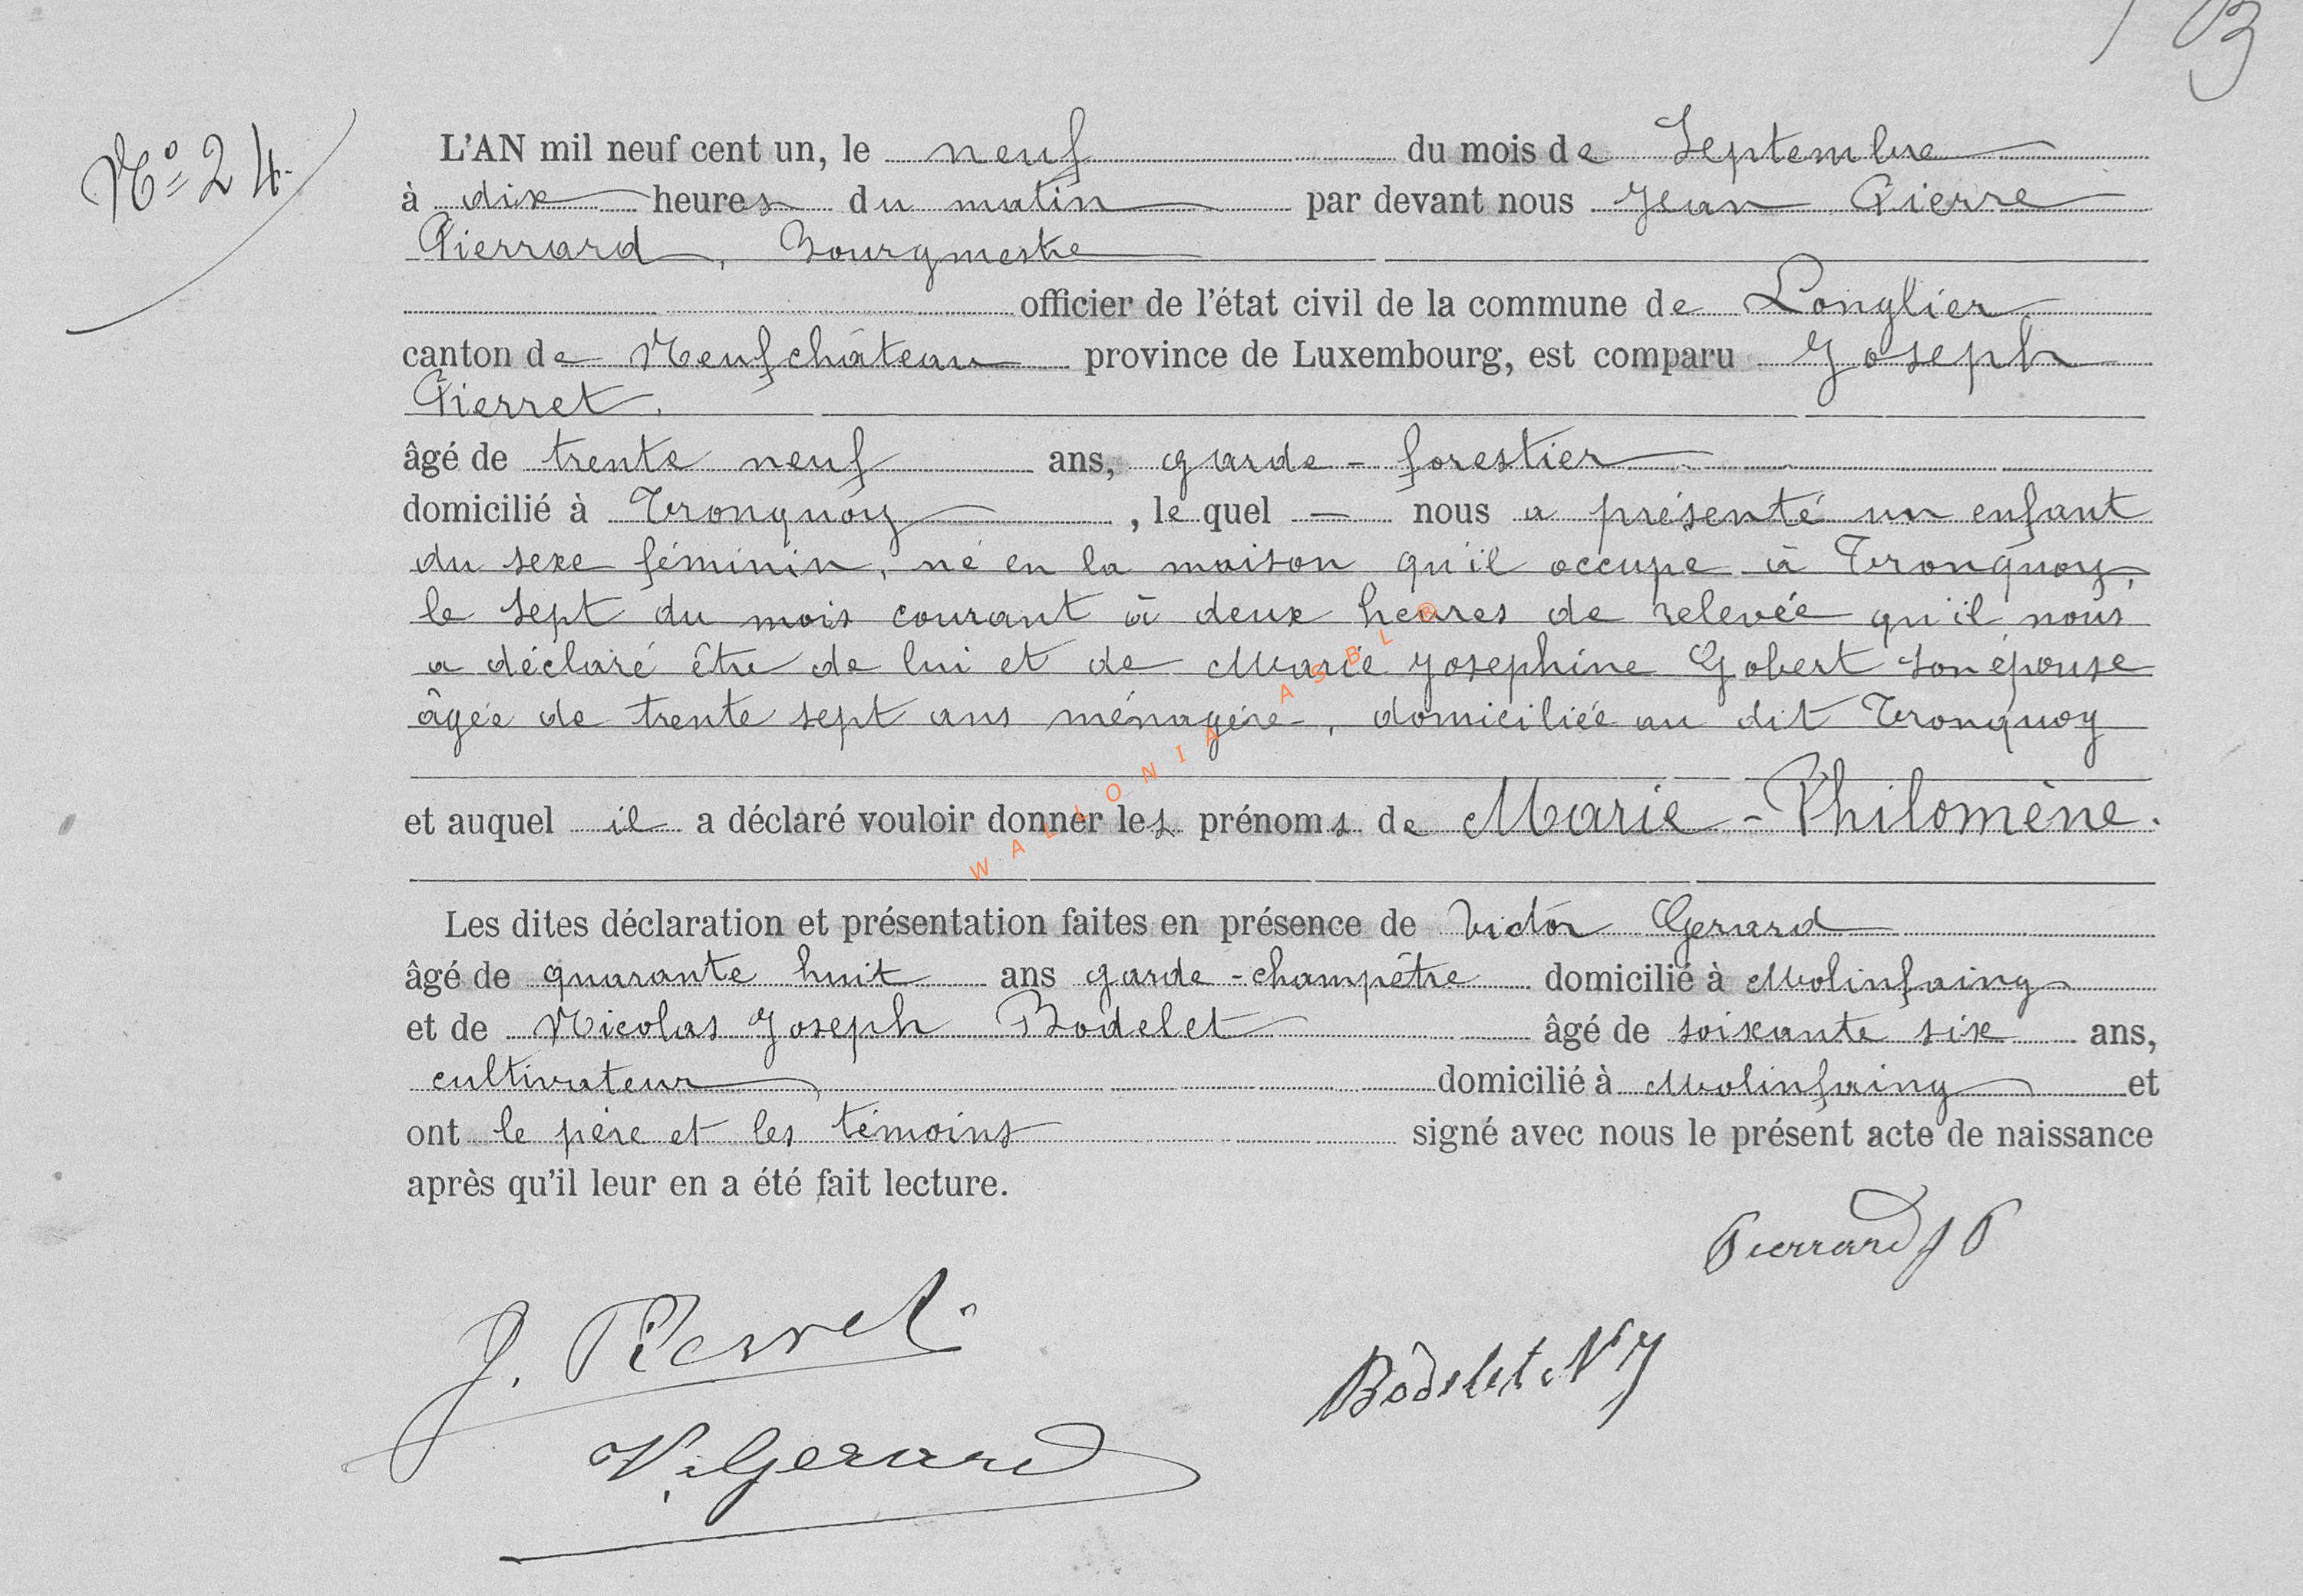 13
N° 24.
L'AN mil neuf cent un, le neuf du mois de Septembre
à dix heures du matin par devant nous Jean Pierre
Pierrard, Bourgmestre
officier de l'état civil de la commune de Longlier
canton de Neufchâteau province de Luxembourg, est comparu Joseph
Pierret.
âgé de trente neuf ans, garde-forestier
domicilié à Tronquoy, le quel — nous a présenté un enfant
du sexe féminin, né en la maison qu'il occupe à Tronquoy,
le sept du mois courant à deux heures de relevée qu'il nous
a déclaré être de lui et de Marie Josephine Gobert son épouse
âgée de trente sept ans ménagère, domiciliée au dit Tronquoy
et auquel il a déclaré vouloir donner les prénoms de Marie-Philomène.
Les dites déclaration et présentation faites en présence de Victor Gerard
âgé de quarante huit ans garde-champêtre domicilié à Molinfaing
et de Nicolas Joseph Bodelet âgé de soixante six ans,
cultivateur domicilié à Molinfaing et
ont le père et les témoins signé avec nous le présent acte de naissance
après qu'il leur en a été fait lecture.
Pierrard J P
J. Pierret
Bodelet N J
V. Gerard
WALLONIA ASBL ®